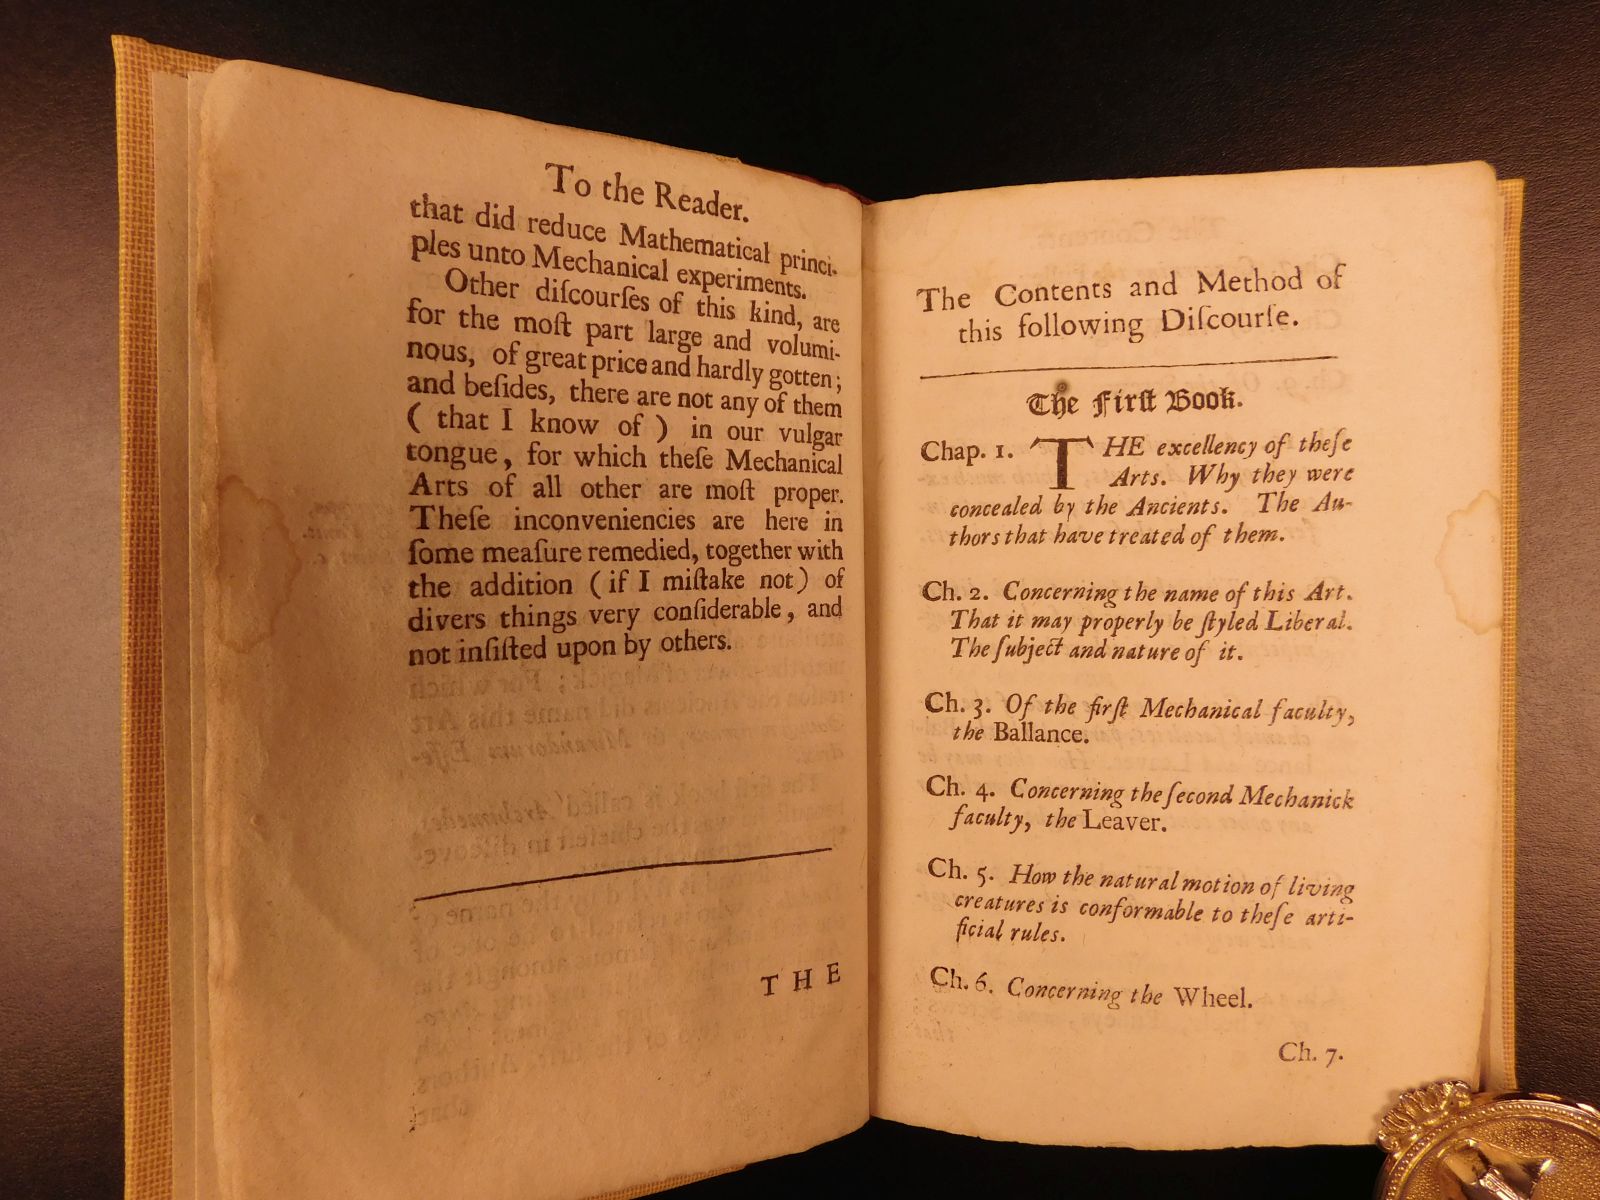 To the Reader.
that did reduce Mathematical princi-
ples unto Mechanical experiments.
Other diſcourſes of this kind, are
for the moſt part large and volumi-
nous, of great price and hardly gotten;
and beſides, there are not any of them
( that I know of ) in our vulgar
tongue, for which theſe Mechanical
Arts of all other are moſt proper.
Theſe inconveniencies are here in
ſome meaſure remedied, together with
the addition ( if I miſtake not ) of
divers things very conſiderable, and
not inſiſted upon by others.
THE
The Contents and Method of
this following Diſcourſe.
The Firſt Book.
Chap. 1. THE excellency of theſe
Arts. Why they were
concealed by the Ancients. The Au-
thors that have treated of them.
Ch. 2. Concerning the name of this Art.
That it may properly be ſtyled Liberal.
The ſubject and nature of it.
Ch. 3. Of the firſt Mechanical faculty,
the Ballance.
Ch. 4. Concerning the ſecond Mechanick
faculty, the Leaver.
Ch. 5. How the natural motion of living
creatures is conformable to theſe arti-
ficial rules.
Ch. 6. Concerning the Wheel.
Ch. 7.